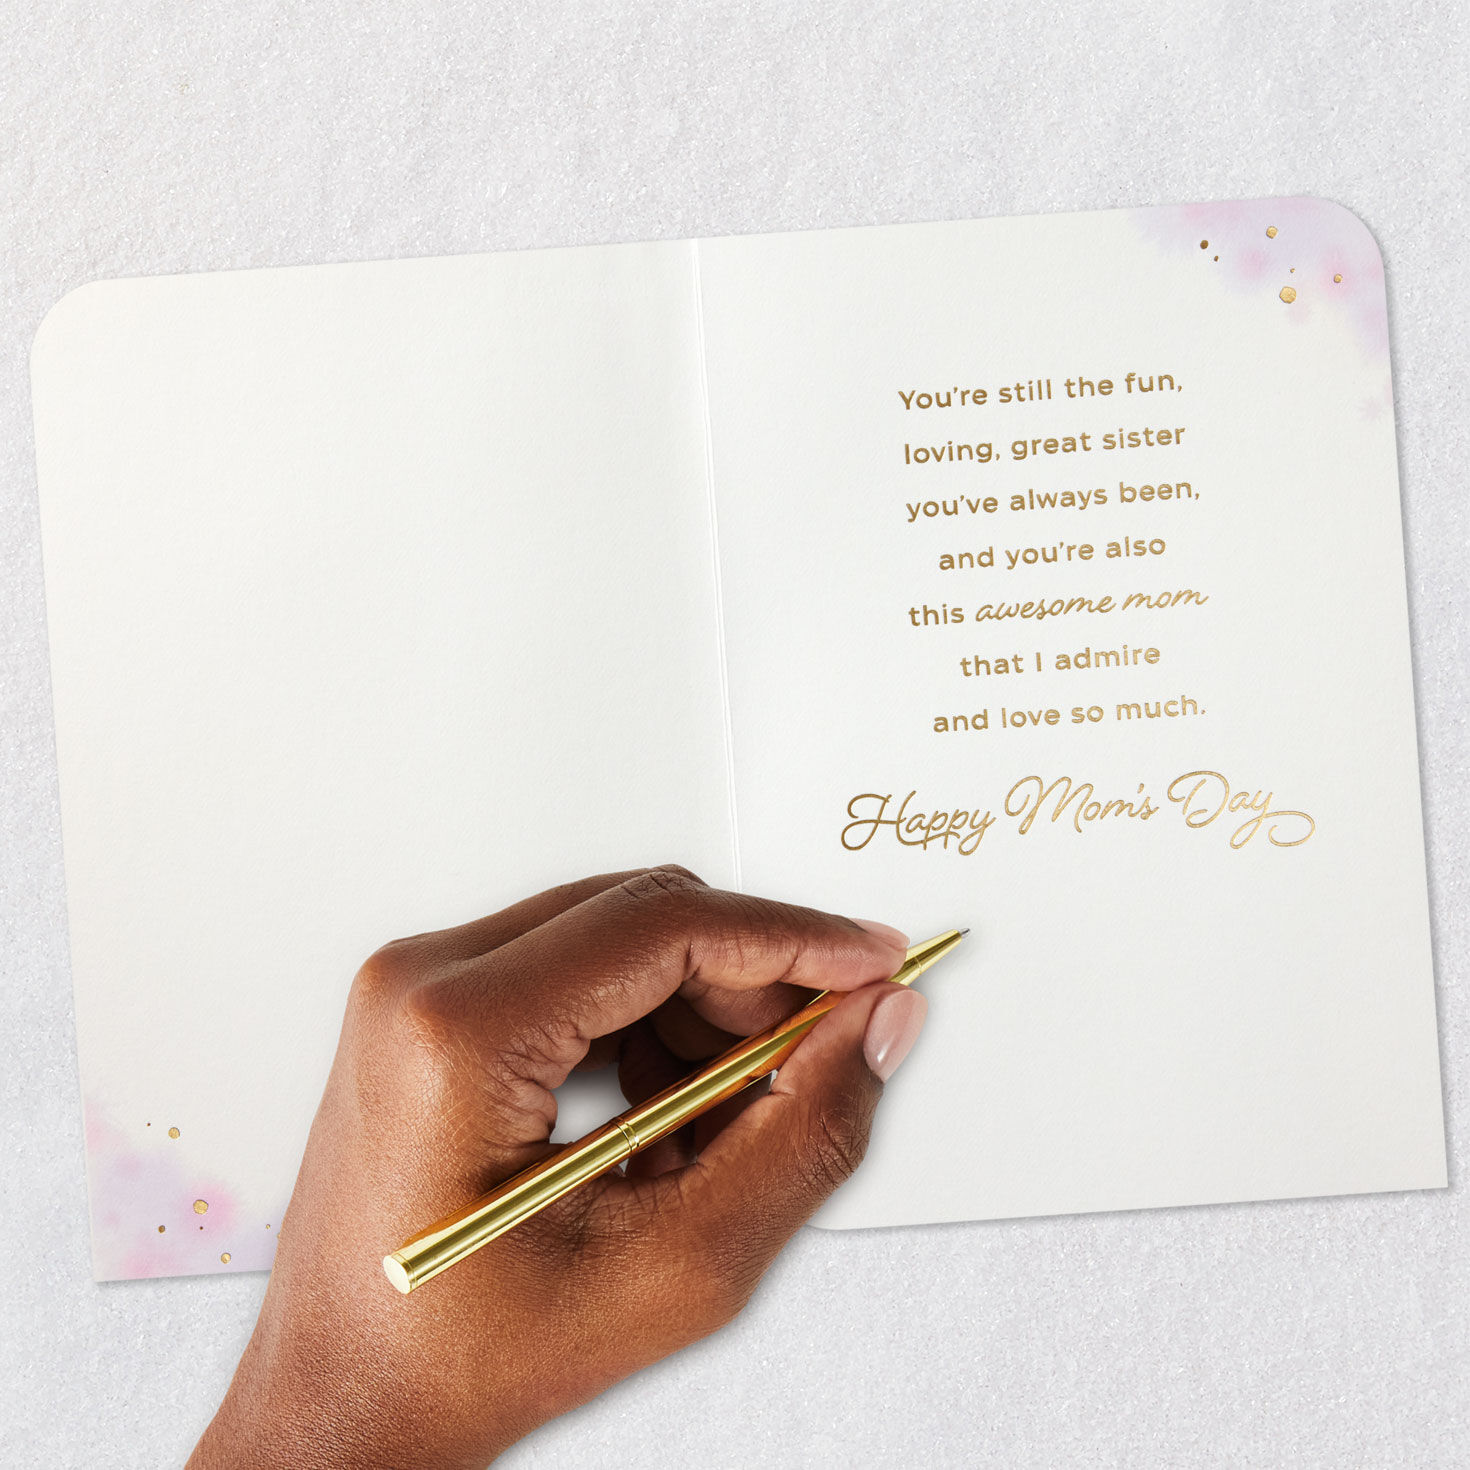 You're still the fun,
loving, great sister
you've always been,
and you're also
this awesome mom
that I admire
and love so much.
Happy Mom's Day